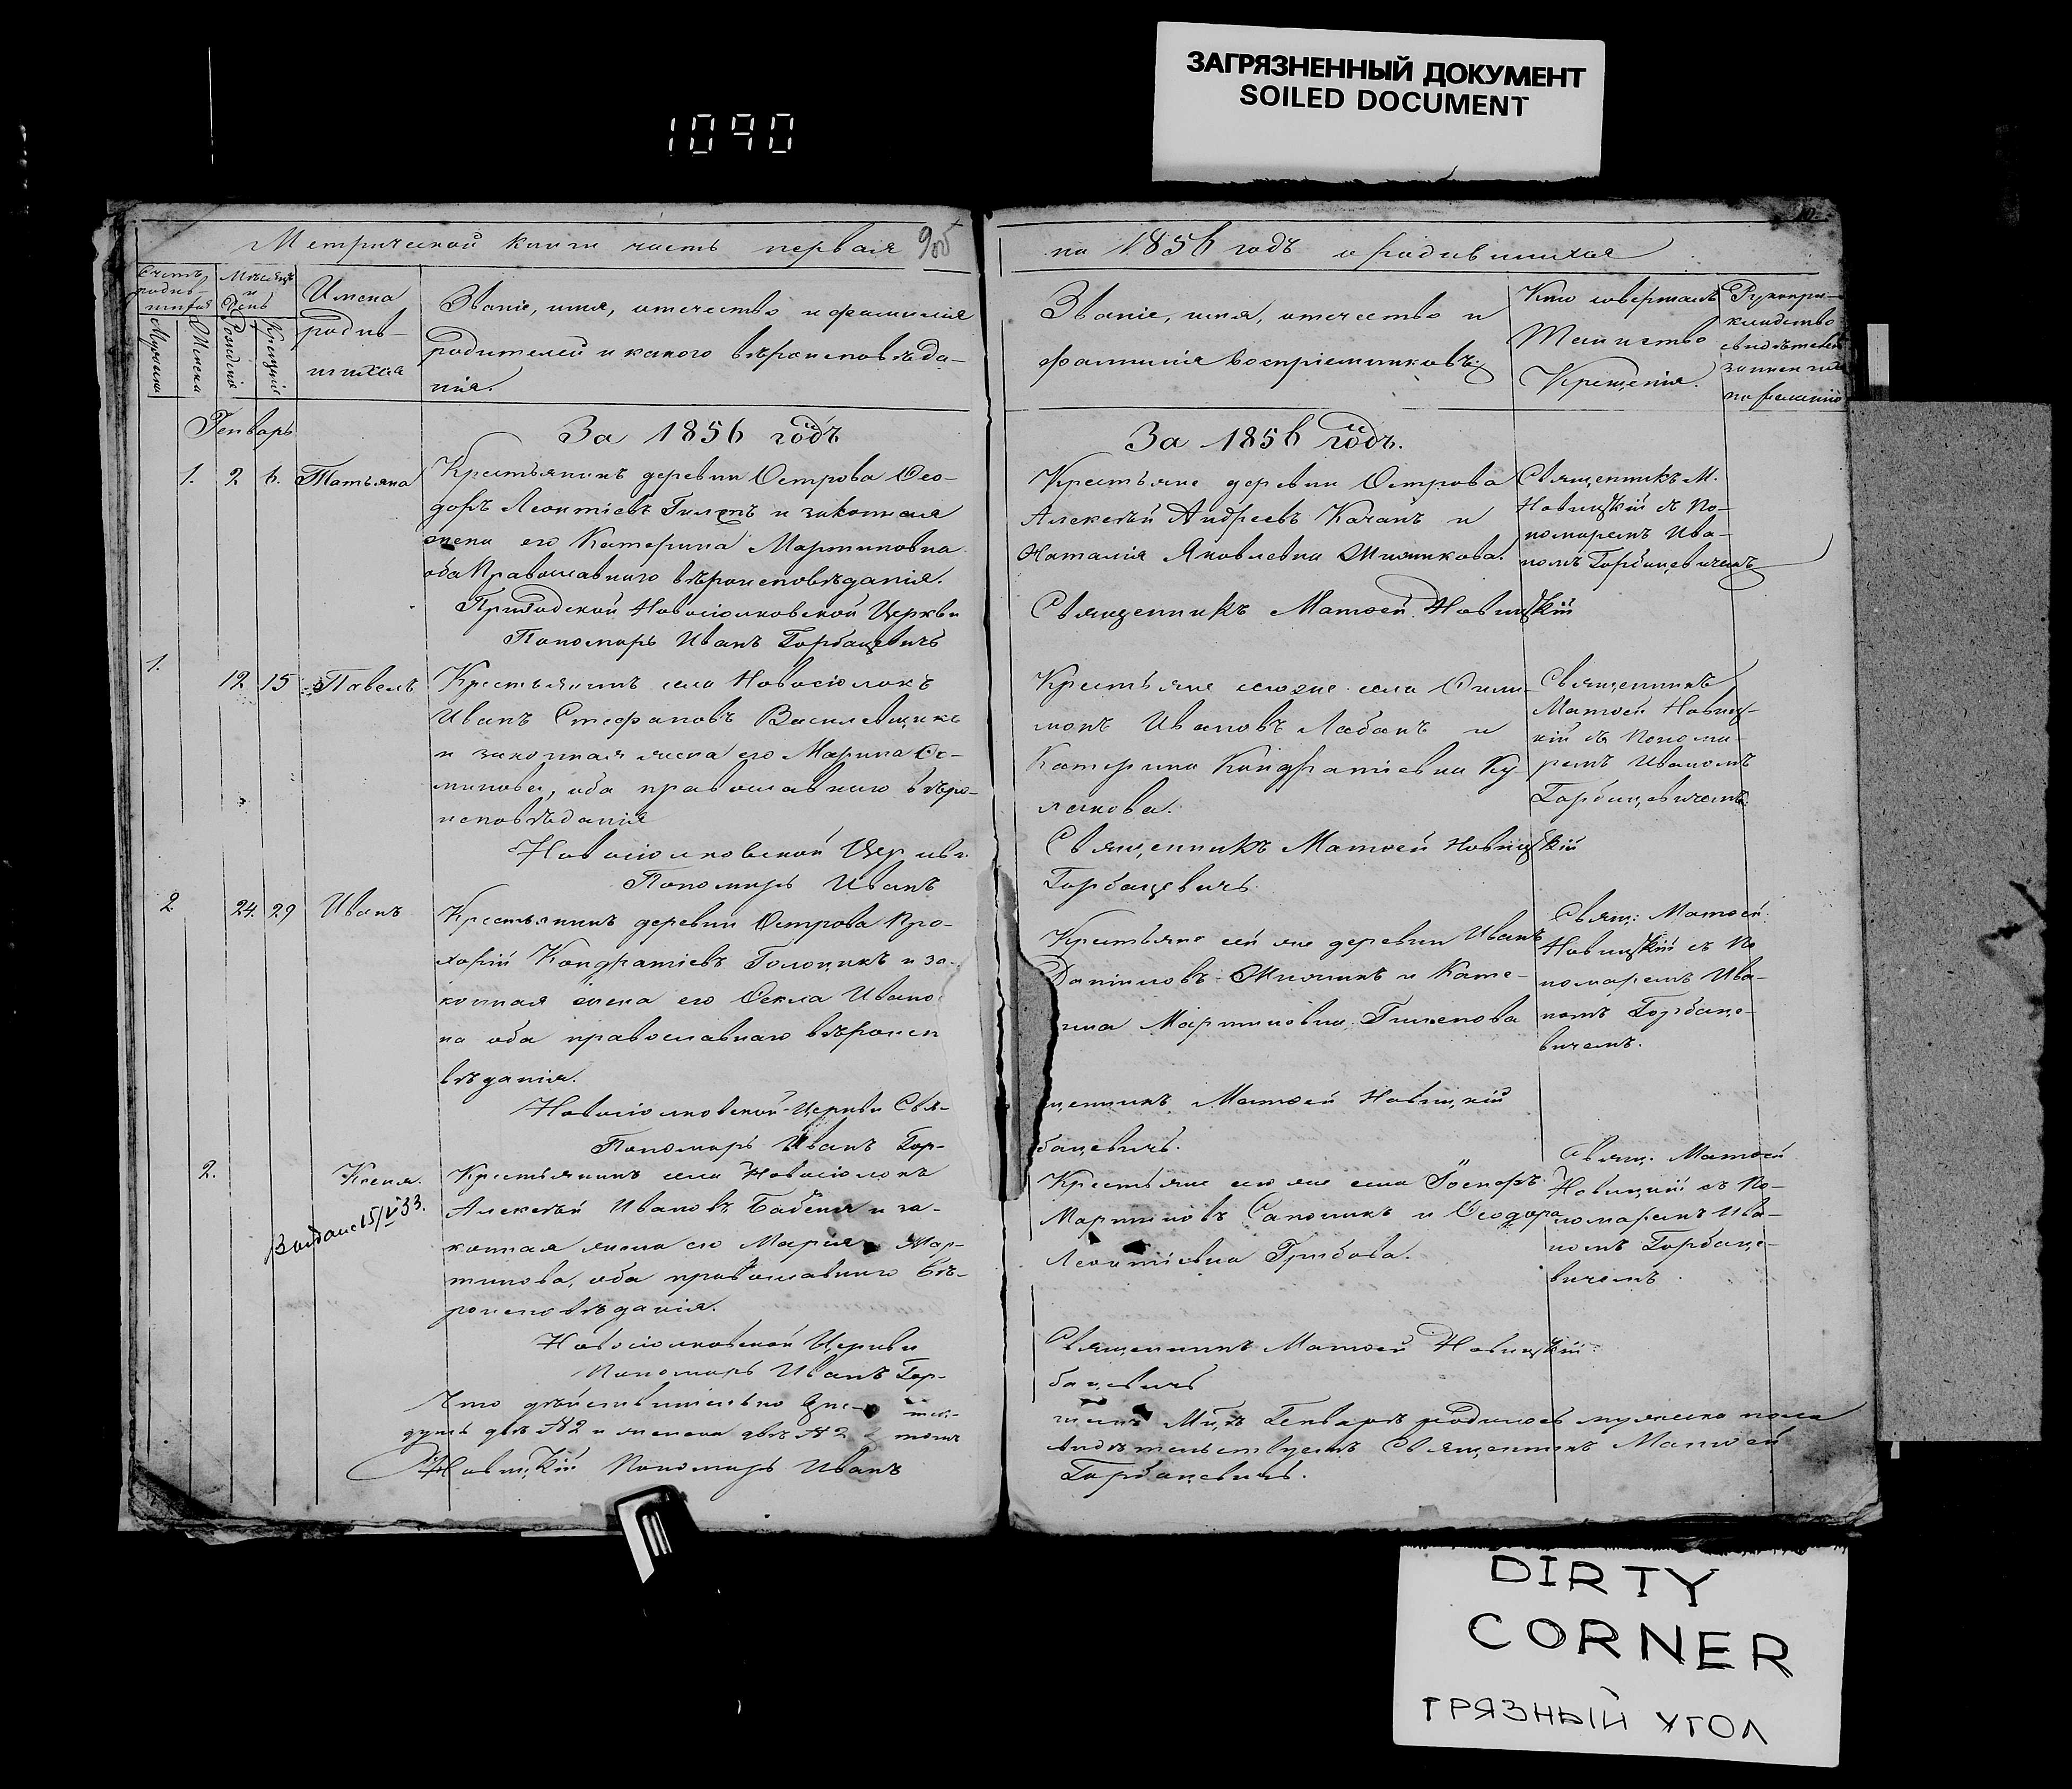 ЗАГРЯЗНЕННЫЙ ДОКУМЕНТ
SOILED DOCUMENT
1090
Метрической книги часть первая
на 1856 годъ о родившихся
Счетъ родив-
шихся
Мѣсяцъ
и
День
Имена
родив-
шихся
Званіе, имя, отечество и фамилія
родителей и какого вѣроисповѣда-
нія.
Званіе, имя, отечество и
фамилія воспріемниковъ
Кто совершалъ
Таинство
Крещенія.
Рукопри-
кладство
свидѣтелей
записи
по желанію
Генварь
За 1856 годъ
За 1856 годъ.
1. 2 6. Татьяна
Крестьянинъ деревни Острова Ѳео-
доръ Леонтіевъ и законная
жена его Катерина Мартиновна
оба Православнаго вѣроисповѣданія.
Приходской Новосіолковской Церкви
Пономарь Иванъ Горбацевичъ
Крестьяне деревни Острова
Алексѣй Андреевъ Качанъ и
Наталія Яковлевна
Священникъ Матѳей Новицкій
Священникъ М.
Новицкій съ По-
номаремъ Ива-
номъ Горбацевичемъ
1. 12 15 Павелъ
Крестьянинъ села Новосіолокъ
Иванъ Стефановъ Василевщикъ
и законная жена его Марина
оба православнаго вѣро-
исповѣданія
Новосіолковской Церкви
Пономарь Иванъ
Крестьяне сего же села Фили-
монъ Ивановъ Лабанъ и
Катерина Кондратіевна Ку-
Священникъ Матѳей Новицкій
Горбацевичъ
Священникъ
Матѳей Новиц-
кій съ Понома-
ремъ Иваномъ
Горбацевичемъ
2 24. 29 Иванъ
Крестьянинъ деревни Острова Про-
хорій Кондратіевъ и за-
конная жена его Ѳекла Ивано
на оба православнаго вѣроисп
вѣданія.
Новосіолковской Церкви Свя-
Пономарь Иванъ Гор-
Крестьяне сей же деревни Иванъ
Даніиловъ и Кате-
рина Мартиновна
щенникъ Матѳей Новицкій
бацевичъ.
Свящ: Матѳей
Новицкій съ По
номаремъ Ива-
номъ Горбаце-
вичемъ.
2. Ксенія.
Wydane 15/V 33.
Крестьянинъ села Новосіолокъ
Алексѣй Ивановъ Бабеня и за-
конная жена его Марія Мар-
тинова, оба православнаго вѣ-
роисповѣданія.
Новосіолковской Церкви
Пономарь Иванъ Гор-
Крестьяне сего же села
Мартиновъ Сапожникъ и Ѳеодора
Леонтіевна Грибова.
Священникъ Матѳей Новицкій
бацевичъ
Свящ. Матѳей
Новицкій съ По-
номаремъ Ива-
номъ Горбаце-
вичемъ
Что дѣйствительно
Генварѣ родилось мужеска пола
душъ двѣ №2 и женска двѣ №2
свидѣтельствуетъ Священникъ Матѳей
Новицкій Пономарь Иванъ
Горбацевичъ.
DIRTY
CORNER
ГРЯЗНЫЙ УГОЛ